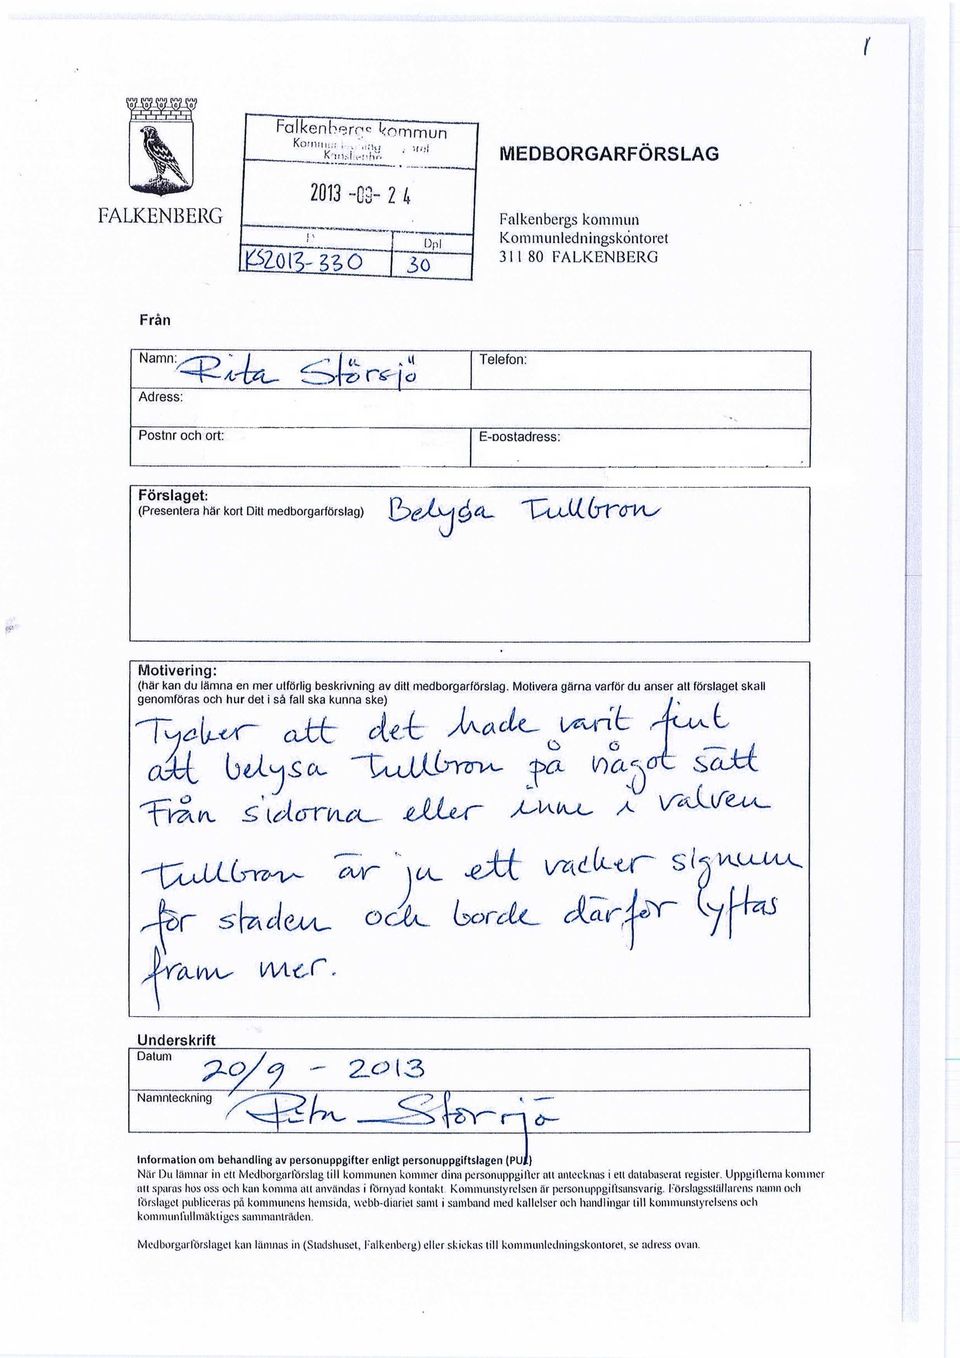 1
FALKENBERG
Falkenbergs kommun
2013 -09- 2 4
Dpl
KS2013-330
30
MEDBORGARFÖRSLAG
Falkenbergs kommun
Kommunledningskontoret
311 80 FALKENBERG
Från
Namn: Rita Störsjö
Telefon:
Adress:
Postnr och ort:
E-postadress:
Förslaget:
(Presentera här kort Ditt medborgarförslag)
Belysa Tullbron
Motivering:
(här kan du lämna en mer utförlig beskrivning av ditt medborgarförslag. Motivera gärna varför du anser att förslaget skall
genomföras och hur det i så fall ska kunna ske)
Tycker att det hade varit fint
att belysa Tullbron på något sätt
Från sidorna eller inne i valven
Tullbron är ju ett vacker signum
för staden och borde därför lyftas
fram mer.
Underskrift
Datum
20/9 - 2013
Namnteckning
Rita Störsjö
Information om behandling av personuppgifter enligt personuppgiftslagen (PUL)
När Du lämnar in ett Medborgarförslag till kommunen kommer dina personuppgifter att antecknas i ett databaserat register. Uppgifterna kommer
att sparas hos oss och kan komma att användas i förnyad kontakt. Kommunstyrelsen är personuppgiftsansvarig. Förslagsställarens namn och
förslaget publiceras på kommunens hemsida, webb-diariet samt i samband med kallelser och handlingar till kommunstyrelsens och
kommunfullmäktiges sammanträden.
Medborgarförslaget kan lämnas in (Stadshuset, Falkenberg) eller skickas till kommunledningskontoret, se adress ovan.